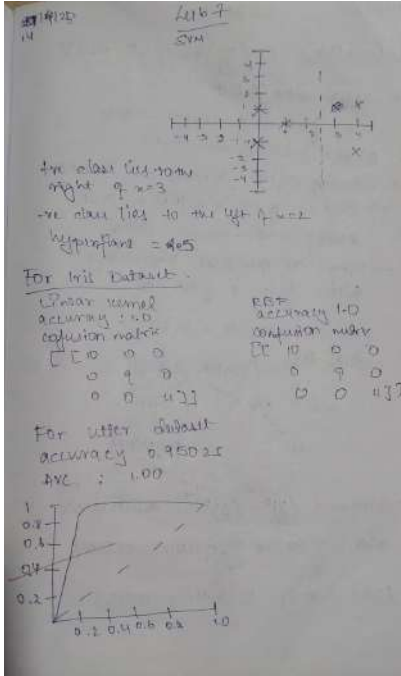 14
Lab 7
SVM
+ve class lies to the
right of x=3
-ve class lies to the left of x=2
hyperplane =
For Iris Dataset.
Linear kernel
accuracy : 1.0
confusion matrix
[[10 0 0
0 9 0
0 0 11]]
RBF
accuracy 1.0
confusion matrix
[[10 0 0
0 9 0
0 0 11]]
For letter dataset
accuracy 0.95025
AUC : 1.00
1
0.8
0.6
0.4
0.2
0.2 0.4 0.6 0.8 1.0